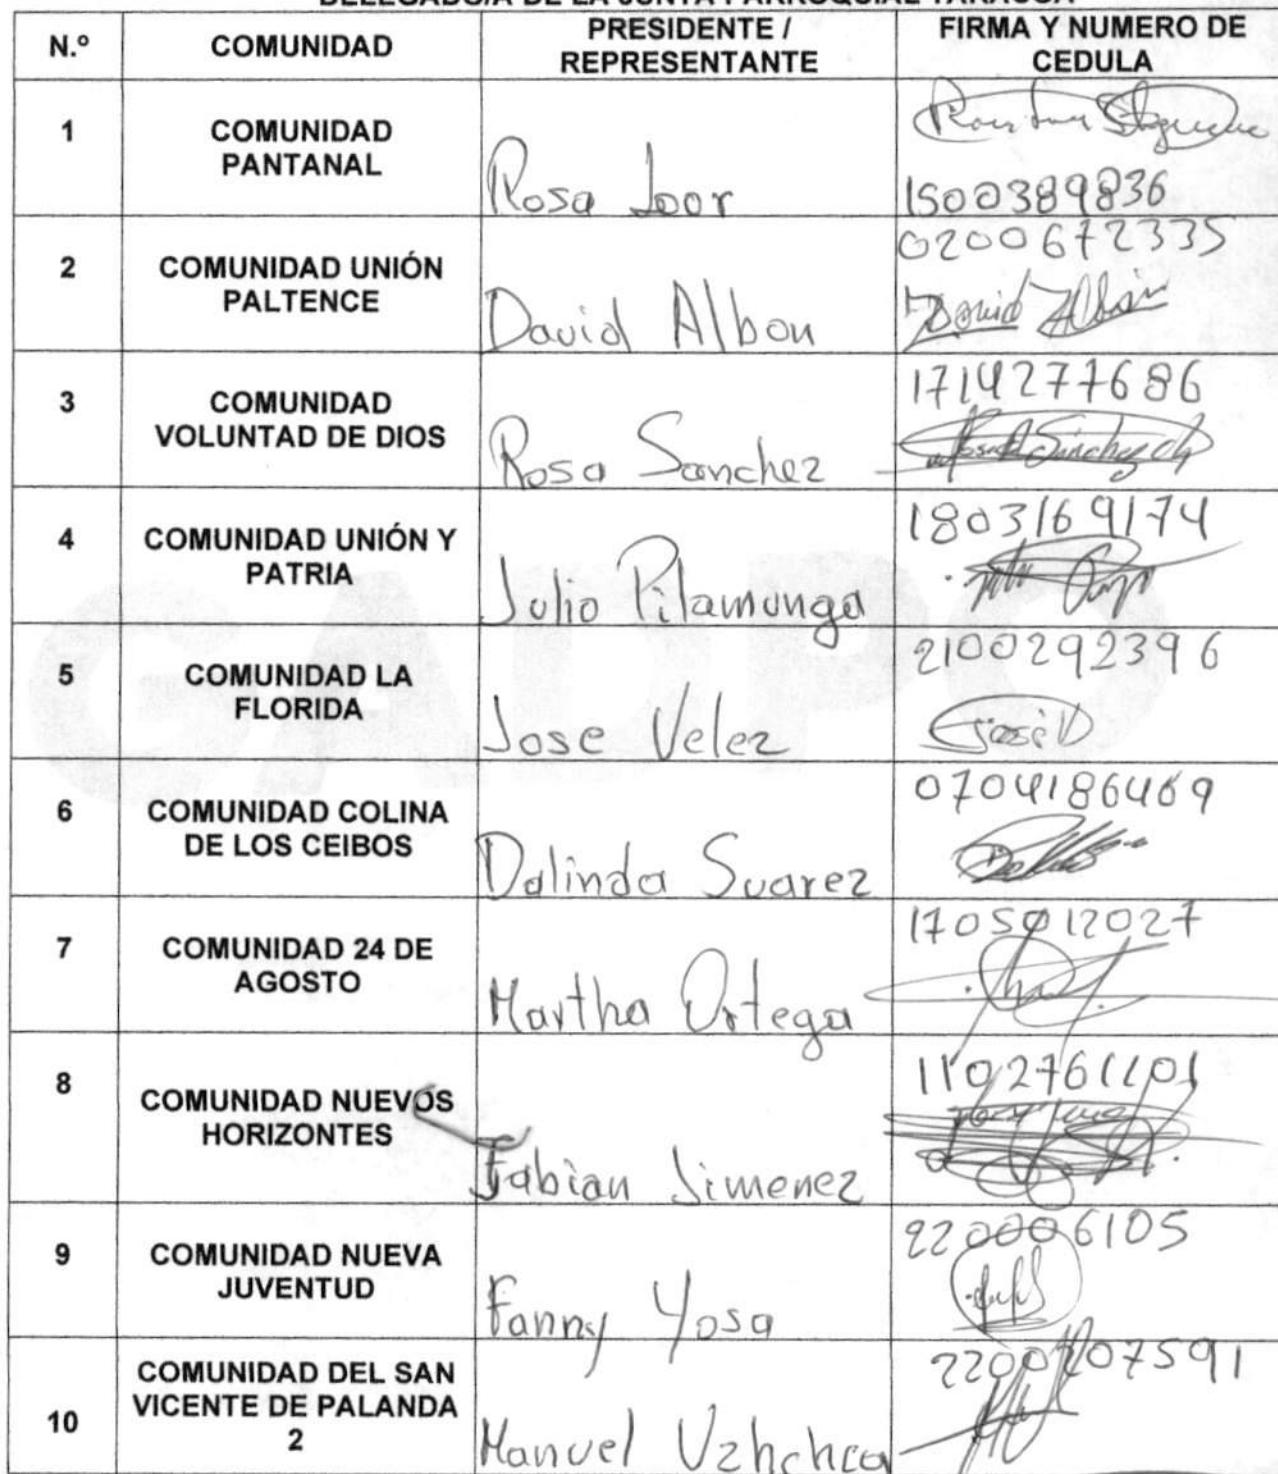 DELEGADO/A DE LA JUNTA PARROQUIAL TARACOA
N.º COMUNIDAD PRESIDENTE / REPRESENTANTE FIRMA Y NUMERO DE CEDULA
1 COMUNIDAD PANTANAL Rosa Loor 1500389836
2 COMUNIDAD UNIÓN PALTENCE David Albon 0200672335 David Alban
3 COMUNIDAD VOLUNTAD DE DIOS Rosa Sanchez 1714277686
4 COMUNIDAD UNIÓN Y PATRIA Julio Pilamunga 1803169174
5 COMUNIDAD LA FLORIDA Jose Velez 2100292396 José V
6 COMUNIDAD COLINA DE LOS CEIBOS Dalinda Suarez 0704186469
7 COMUNIDAD 24 DE AGOSTO Martha Ortega 1705012027
8 COMUNIDAD NUEVOS HORIZONTES Fabian Jimenez 1102761101
9 COMUNIDAD NUEVA JUVENTUD Fanny Yosa 220006105
10 COMUNIDAD DEL SAN VICENTE DE PALANDA 2 Manuel
GADPO